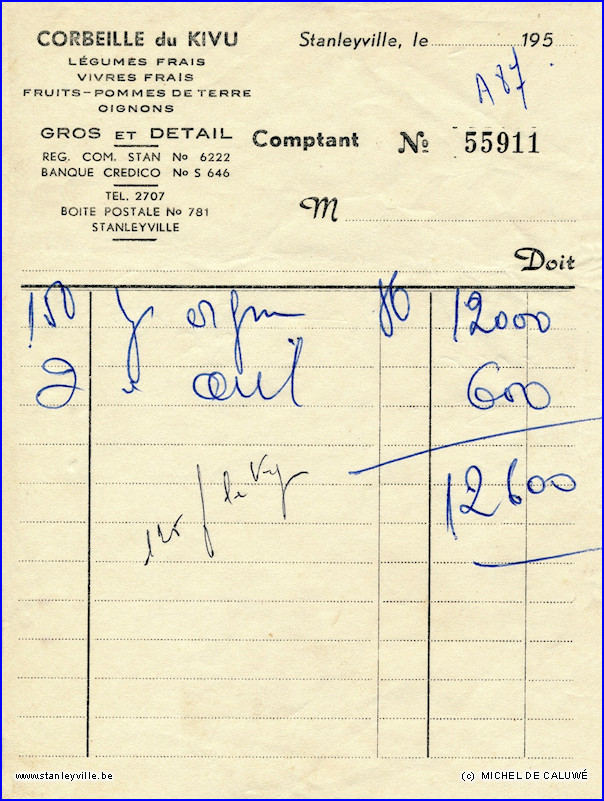 CORBEILLE du KIVU
LÉGUMES FRAIS
VIVRES FRAIS
FRUITS-POMMES DE TERRE
OIGNONS
GROS ET DETAIL
REG. COM. STAN No 6222
BANQUE CREDICO No S 646
TEL. 2707
BOITE POSTALE No 781
STANLEYVILLE
Stanleyville, le 195
A 87
Comptant No 55911
M
Doit
150 80 12000
2 600
12600
125
www.stanleyville.be
(c) MICHEL DE CALUWÉ